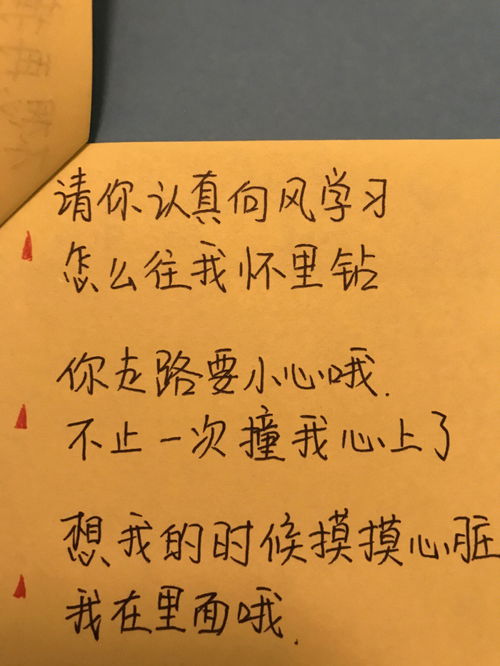 请你认真向风学习
怎么往我怀里钻
你走路要小心哦.
不止一次撞我心上了
想我的时候摸摸心脏
我在里面哦.